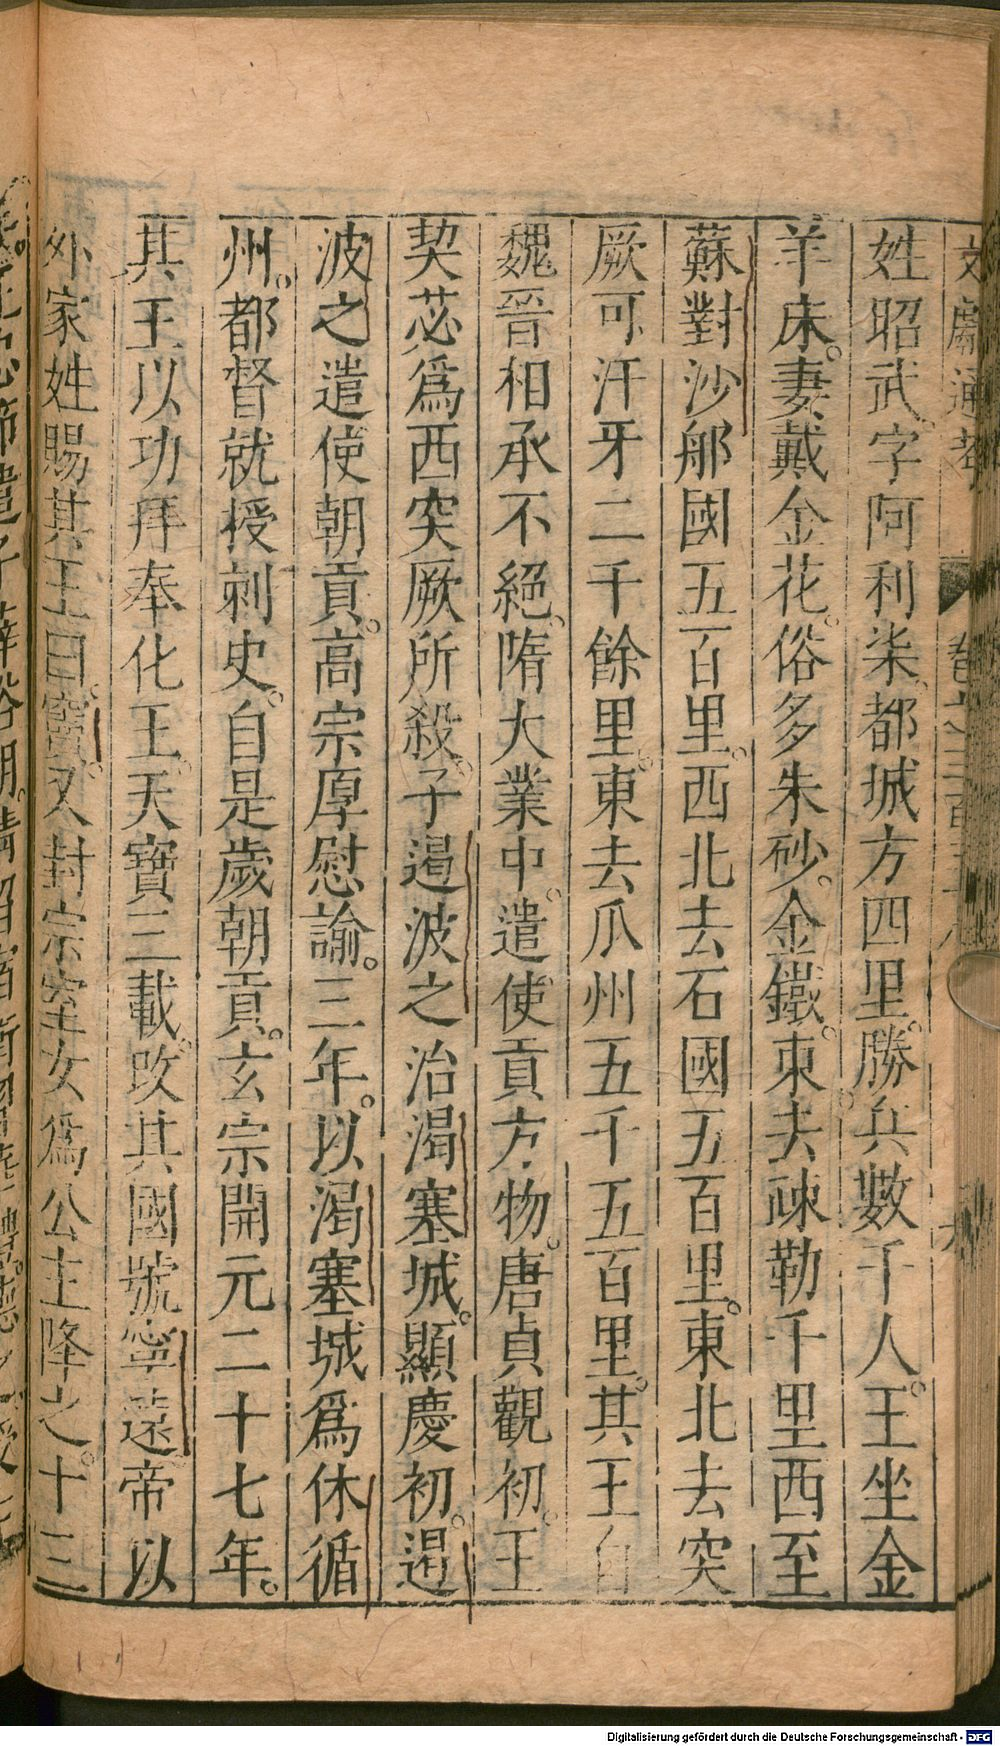 文獻通考 卷之三百三十八 六
姓昭武字阿利柒都城方四里勝兵數千人王坐金
羊床妻戴金花俗多朱砂金鐵東去疎勒千里西至
蘇對沙那國五百里西北去石國五百里東北去突
厥可汗牙二千餘里東去瓜州五千五百里其王自
魏晉相承不絕隋大業中遣使貢方物唐貞觀初王
契苾爲西突厥所殺子遏波之治渴塞城顯慶初遏
波之遣使朝貢高宗厚慰諭三年以渴塞城爲休循
州都督就授刺史自是歲朝貢玄宗開元二十七年
其王以功拜奉化王天寶三載攺其國號寧遠帝以
外家姓賜其王曰竇又封宗室女爲公主降之十三
Digitalisierung gefördert durch die Deutsche Forschungsgemeinschaft - DFG